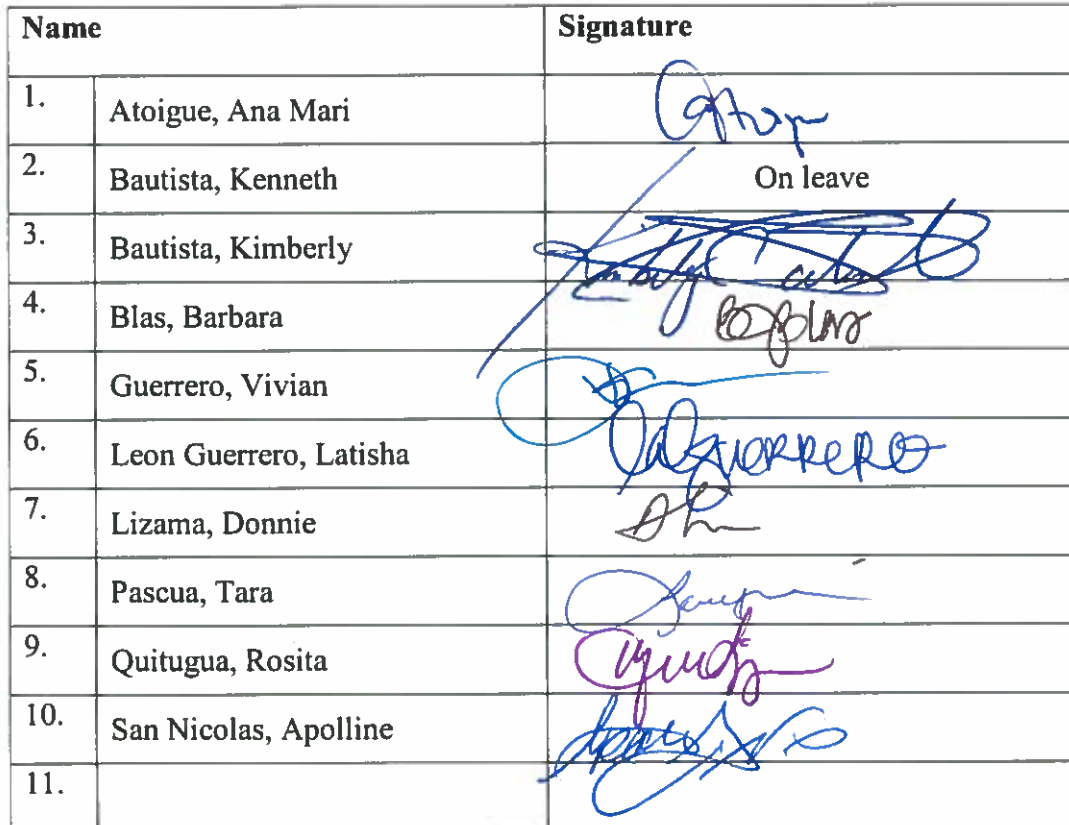 Name Signature
1. Atoigue, Ana Mari
2. Bautista, Kenneth On leave
3. Bautista, Kimberly
4. Blas, Barbara
5. Guerrero, Vivian
6. Leon Guerrero, Latisha
7. Lizama, Donnie
8. Pascua, Tara
9. Quitugua, Rosita
10. San Nicolas, Apolline
11.